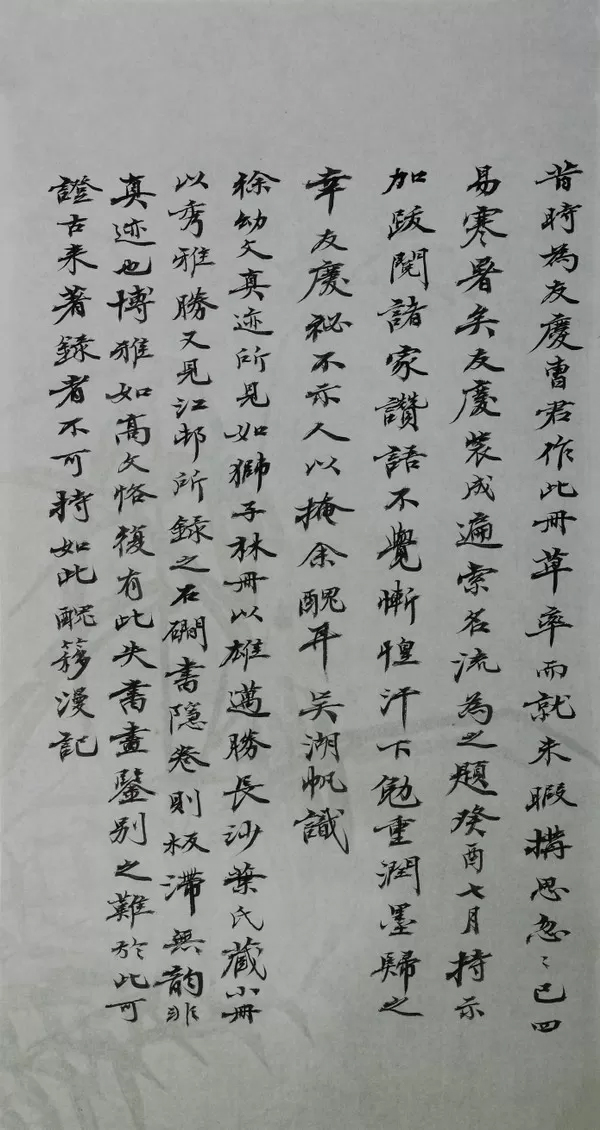 昔時為友慶曹君作此冊草率而就未暇構思忽〻已四
易寒暑矣友慶裝成遍索名流為之題癸酉七月持示
加跋閱諸家讚語不覺慚惶汗下勉重潤墨歸之
幸友慶祕不示人以掩余醜耳吳湖帆識
徐幼文真迹所見如獅子林冊以雄邁勝長沙葉氏藏小冊
以秀雅勝又見江邨所錄之石磵書隱卷則板滯無韵非
真迹也博雅如高文恪復有此失書畫鑒別之難於此可
證古来著錄者不可持如此醜簃漫記